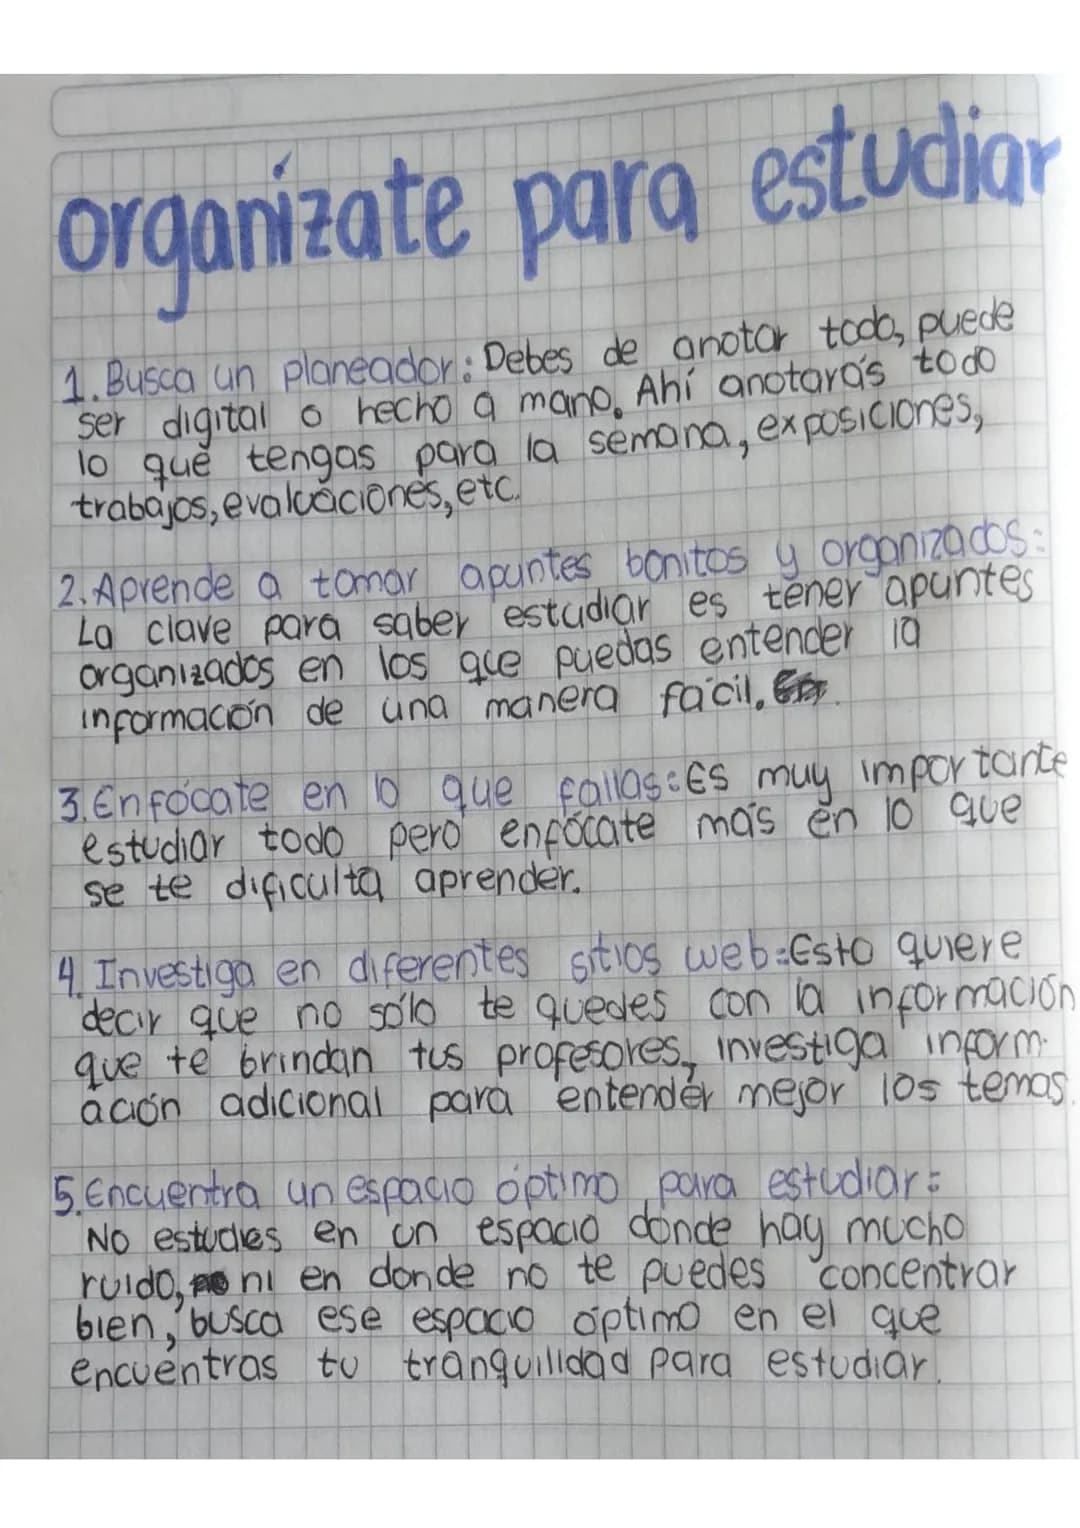 organízate para estudiar
1. Busca un planeador: Debes de anotar todo, puede
ser digital o hecho a mano. Ahí anotarás todo
lo que tengas para la semana, exposiciones,
trabajos, evaluaciones, etc.
2. Aprende a tomar apuntes bonitos y organizados:
La clave para saber estudiar es tener apuntes
organizados en los que puedas entender la
información de una manera fácil.
3. Enfócate en lo que fallas: Es muy importante
estudiar todo pero enfócate más en lo que
se te dificulta aprender.
4. Investiga en diferentes sitios web: Esto quiere
decir que no sólo te quedes con la información
que te brindan tus profesores, investiga inform-
ación adicional para entender mejor los temas.
5. Encuentra un espacio óptimo para estudiar:
No estudies en un espacio donde hay mucho
ruido, ni en donde no te puedes concentrar
bien, busca ese espacio óptimo en el que
encuentras tu tranquilidad para estudiar.